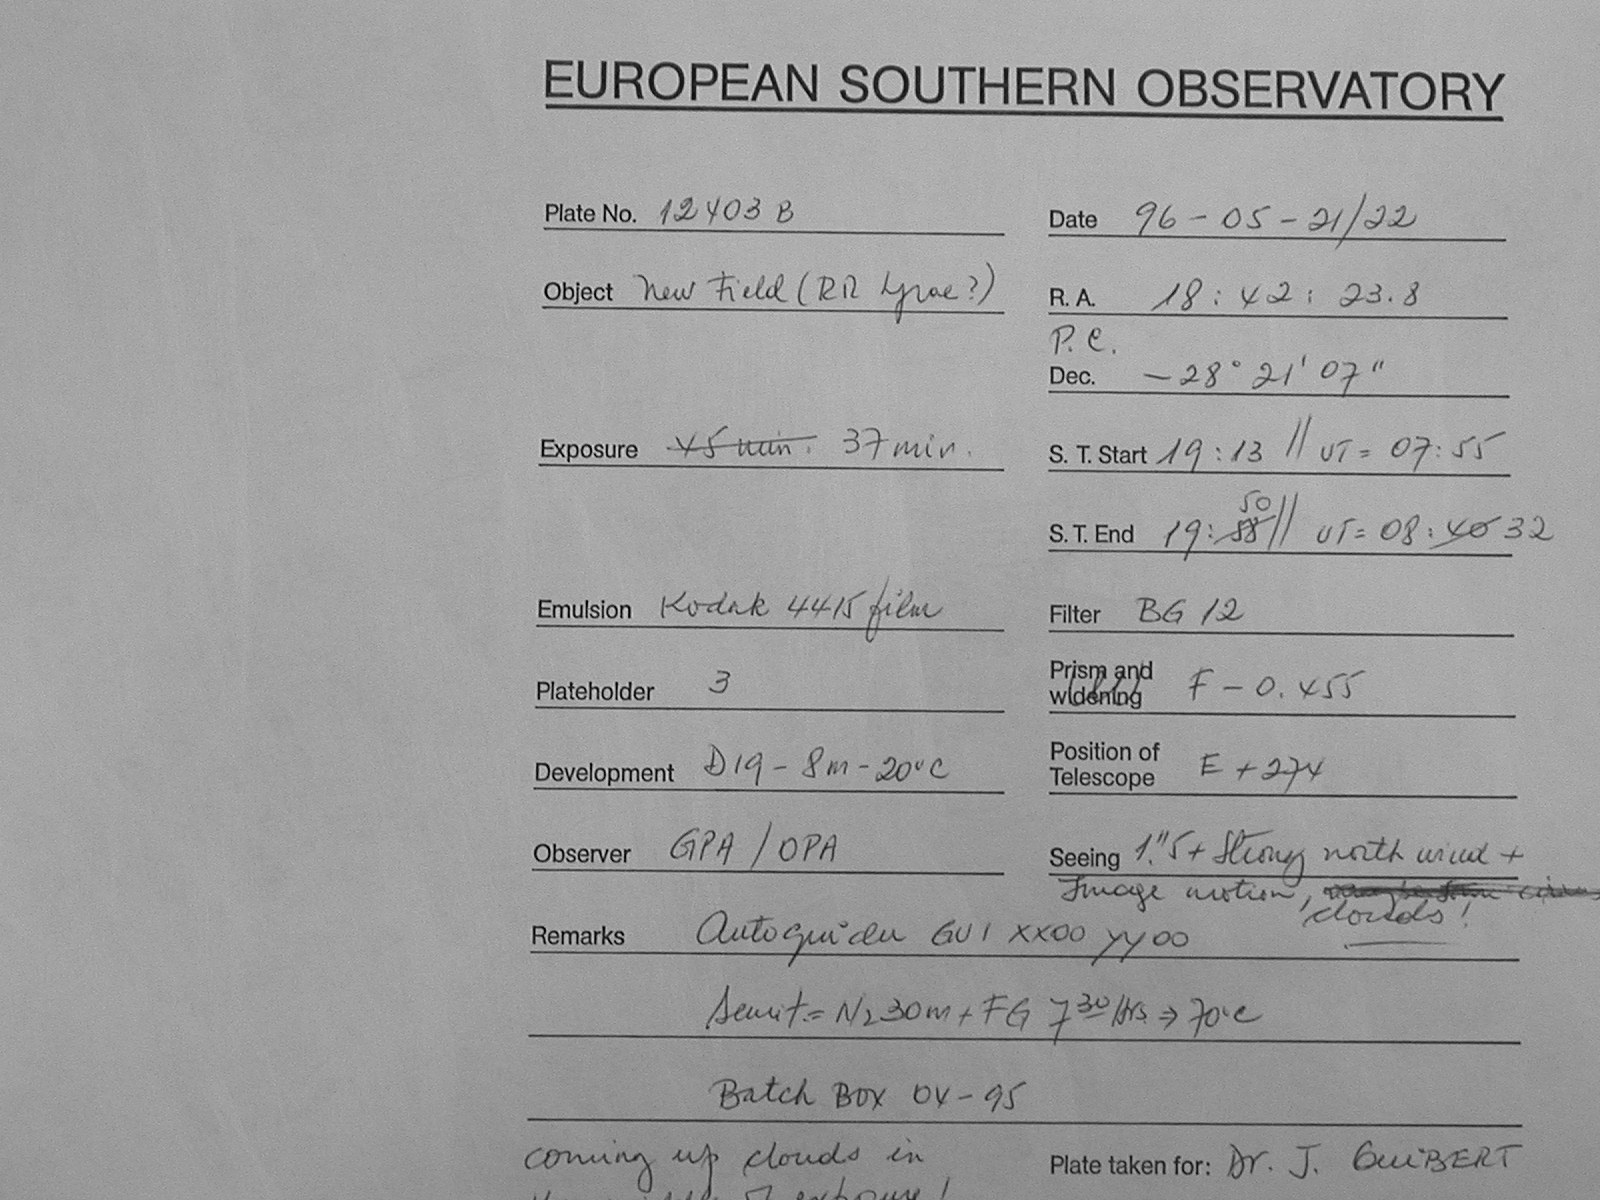 EUROPEAN SOUTHERN OBSERVATORY
Plate No. 12403 B
Date 96 - 05 - 21/22
Object New Field (RR Lyrae?)
R. A. 18 : 42 : 23.8
P. C.
Dec. - 28° 21' 07"
Exposure 45 min. 37 min.
S. T. Start 19 : 13 // UT = 07:55
50
S. T. End 19: 58 // UT = 08: 40 32
Emulsion Kodak 4415 film
Filter BG 12
Plateholder 3
Prism and
widening F - 0.455
Development D19 - 8m - 20°C
Position of
Telescope E + 274
Observer GPA / OPA
Seeing 1."5 + Strong north wind +
Image motion,
clouds!
Remarks Autoguider GU1 XX00 YY00
Sensit = N2 30m + FG 7 30/Hrs ⇒ 70°C
Batch Box 04 - 95
coming up clouds in
of exposure!
Plate taken for: Dr. J. GUIBERT